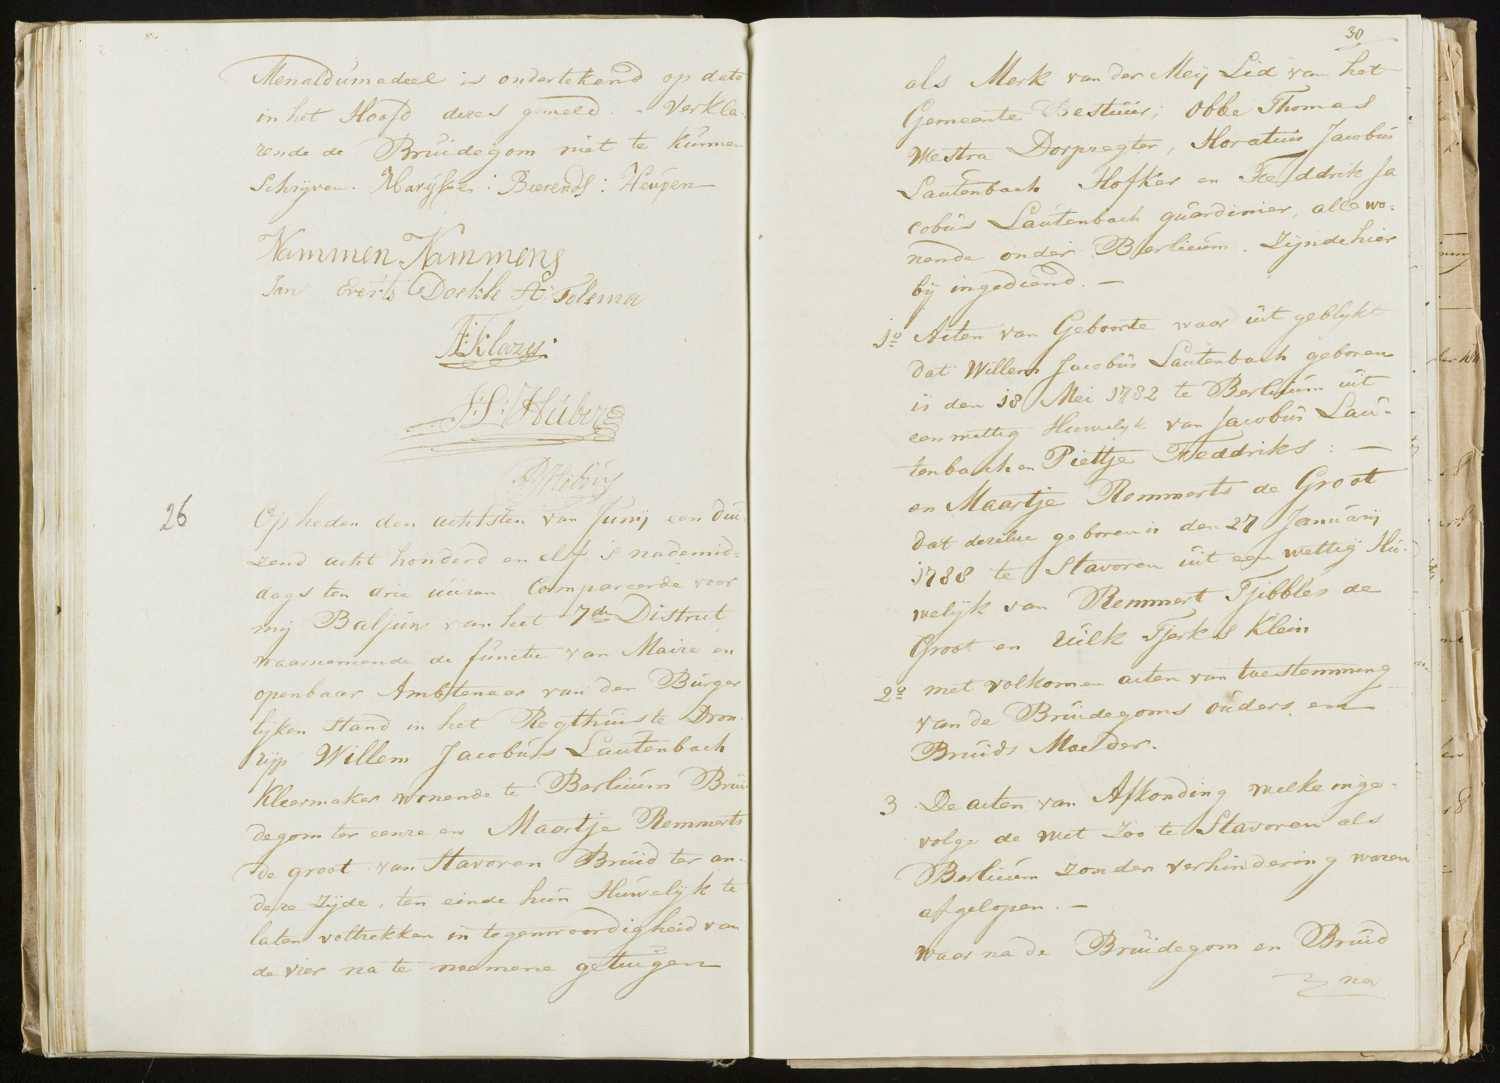 Menaldumadeel is ondertekend op dato
in het Hoofd dezes gemeld. - Verkla-
rende de Bruidegom niet te kunnen
Schrijven. Barends: Heupen
Nammen Nammens
Jan Everts Doekle A: Tolsma
F: Klazes.
J: L: Huber
26
Op heden den achtsten van Junij een dui-
zend acht honderd en elf 's nademid-
dags ten drie uuren Compareerde voor
mij Baljuw van het 7de District
waarnemende de functie van Maire en
openbaar Ambtenaar van den Burger
lijken stand in het Regthuis te Dron-
rijp Willem Jacobus Lautenbach
Kleermaker wonende te Berlicum Brui
degom ter eenre en Maartje Remmerts
de groot van Stavoren Bruid ter an-
dere zijde, ten einde hun Huwelijk te
laten voltrekken in tegenwoordigheid van
de vier na te noemene getuigen
30
als Merk van der Meij Lid van het
Gemeente Bestuur; Obbe Thomas
Westra Dorpregter, Horatius Jacobus
Lautenbach Hofker en Feddrik Ja
cobus Lautenbach guardinier, alle wo-
nende onder Berlicum. Zijnde hier
bij ingediend. -
1o Acten van Geboorte waar uit geblijkt
dat Willem Jacobus Lautenbach geboren
is den 18 Mei 1782 te Berlicum uit
een wettig Huwelyk van Jacobus Lau-
tenbach en Pietje Feddriks: -
en Maartje Remmerts de Groot
dat dezelve geboren is den 27 Januarij
1788 te Stavoren uit een wettig Hu-
welijk van Remmert Tjibbles de
Groot en Uilk Tjerks Klein
2o met volkomen acten van toestemming
van de Bruidegoms ouders en
Bruids Moeder.
3 De acten van Afkonding welke inge-
volge de wet zoo te Stavoren als
Berlicum zonder verhindering waren
afgelopen. -
waar na de Bruidegom en Bruid
na